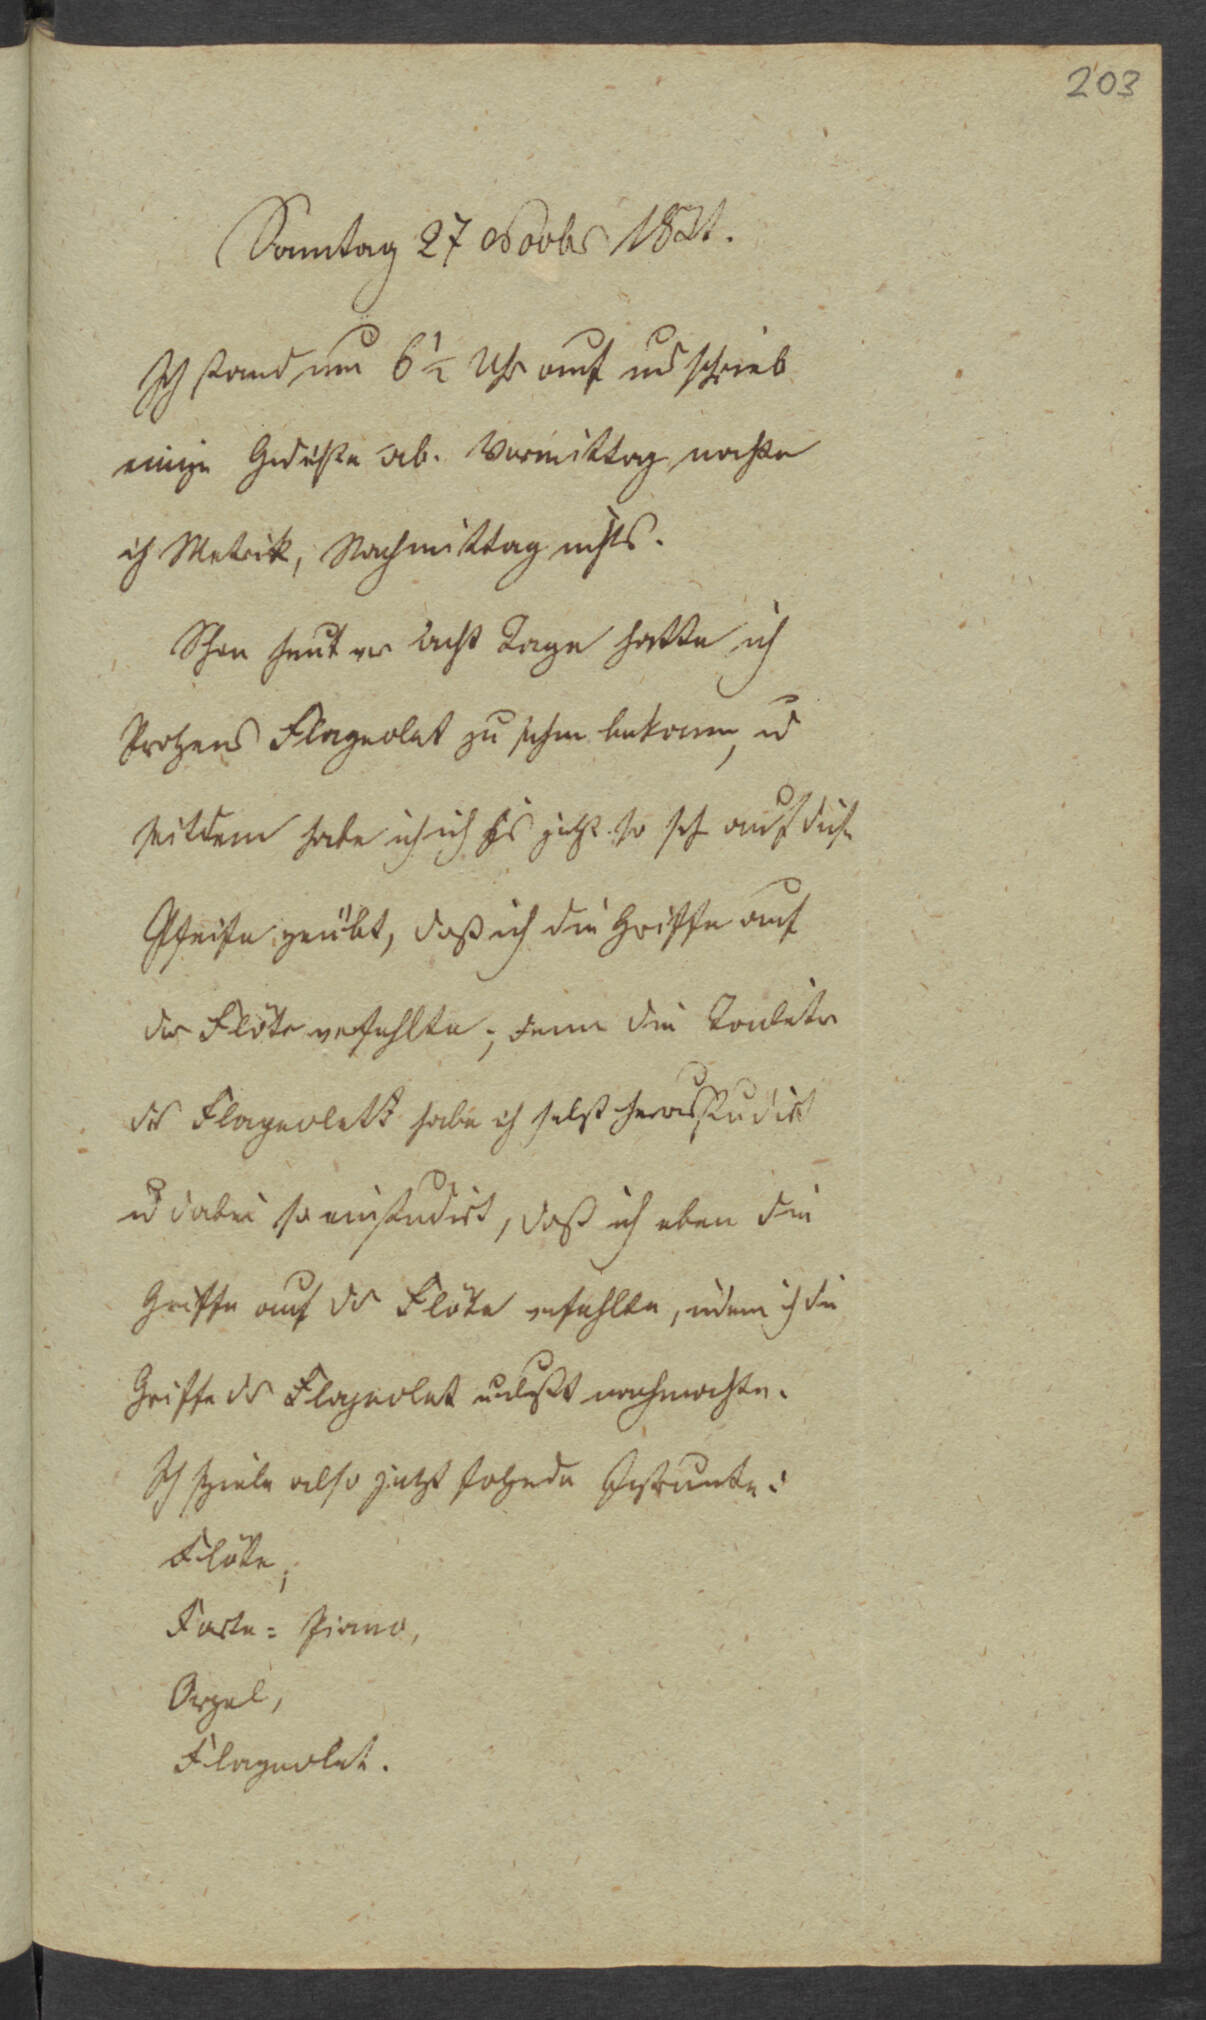 203
Sonntag 27 Novbr 1831.
Ich stand um 6 1/2 Uhr auf und schrieb
einige Gedichte ab. Vormittag machte
ich Metrik, Nachmittag nichts.
Schon heut vor acht Tage hatte ich
Flageolet zu sehen bekomm, u
seitdem habe ich ich bis jetzt so sehr auf diese
Pfeife geübt, daß ich die Griffe auf
der Flöte verfehlte; denn die Tonleiter
des Flageoletts habe ich selbst herausstudirt
u dabei so einstudirt, daß ich eben die
Griffe auf der Flöte verfehlte, indem ich die
Griffe des Flageolet nachmachte.
Ich spiele also jetzt folgende Instrumente:
Flöte,
Forte=Piano,
Orgel,
Flageolet.